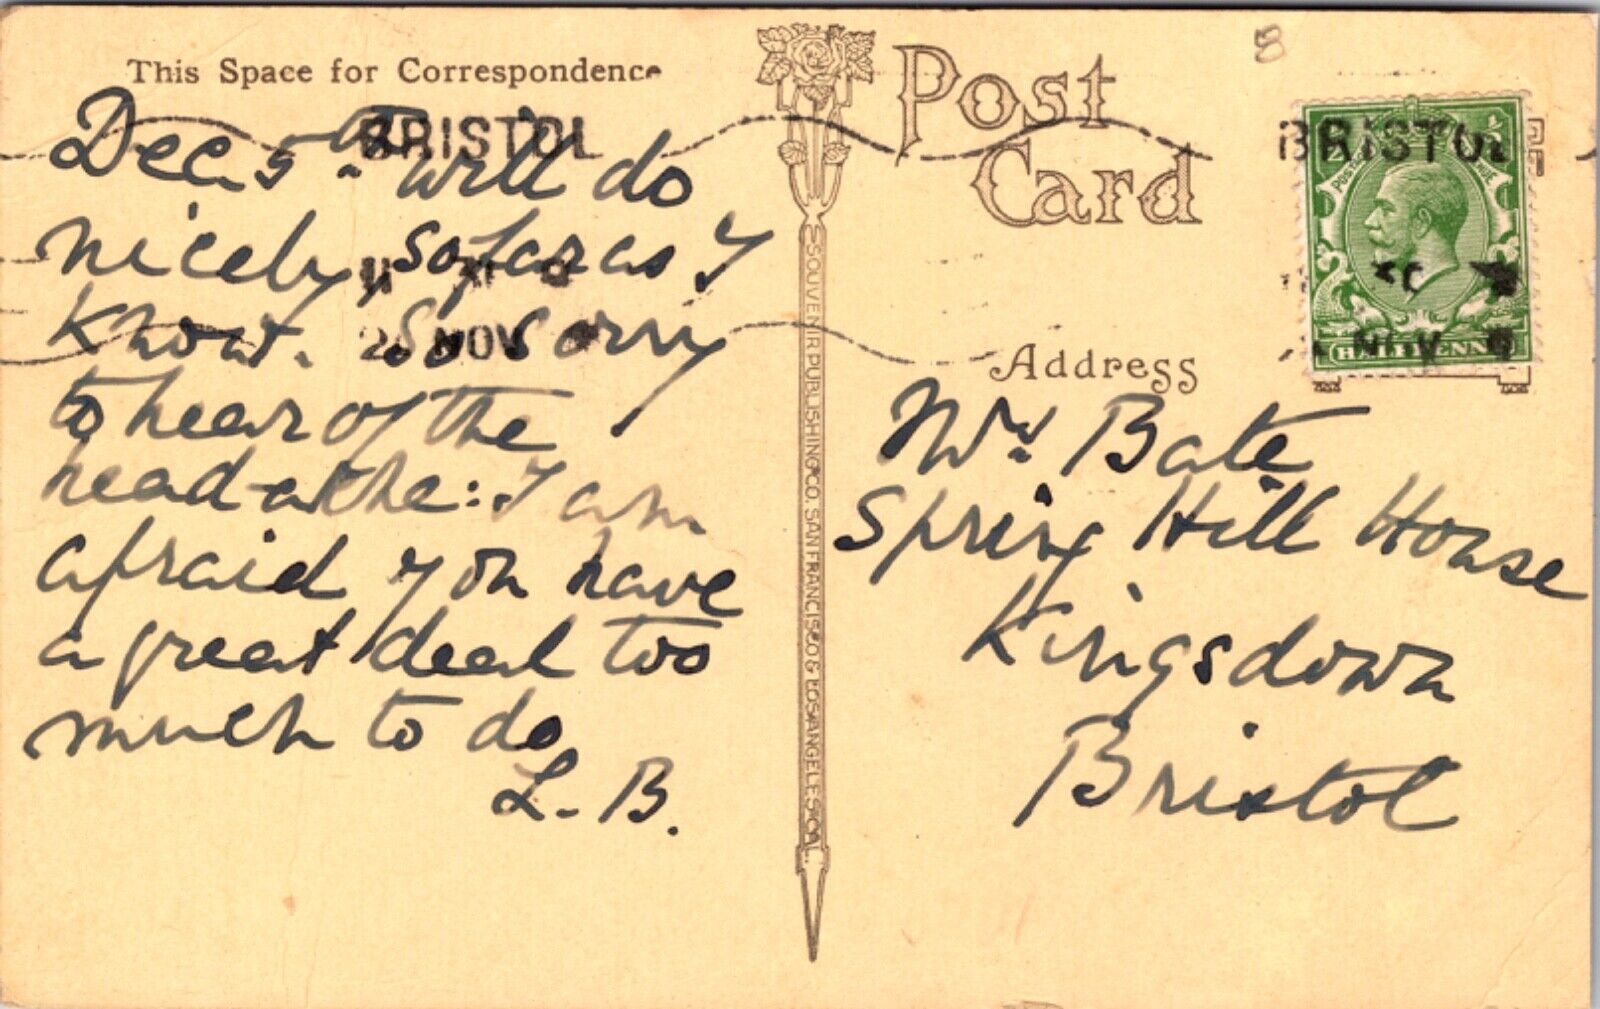 This Space for Correspondence
Post
Card
BRISTOL
BRISTOL
Dec 5th will do
nicely, so far as I
know. So sorry
to hear of the
head-ache: I am
afraid you have
a great deal too
much to do
L. B.
28 NOV
SOUVENIR PUBLISHING CO. SAN FRANCISCO & LOS ANGELES CAL.
HALFPENNY
Address
Mrs Bate
Spring Hill House
Kingsdown
Bristol